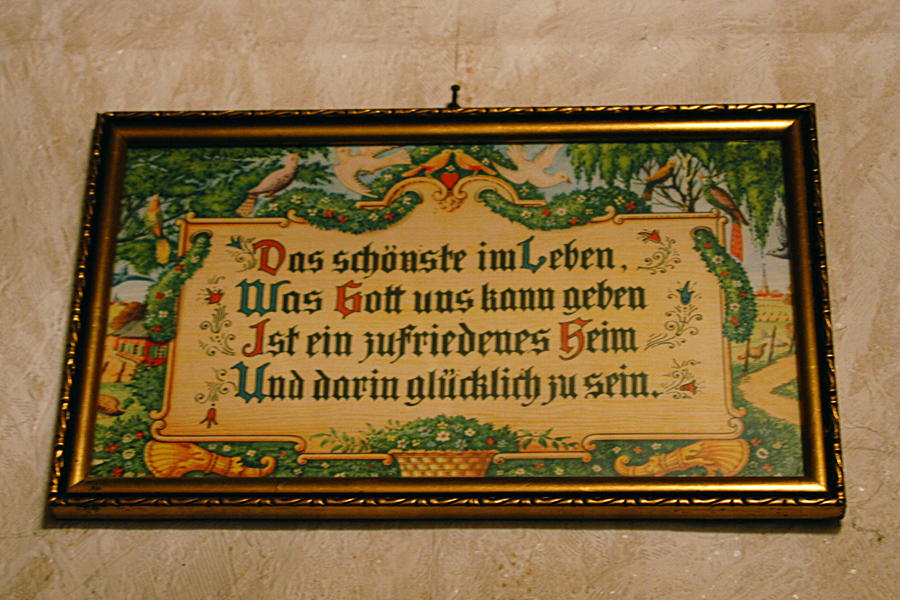 Das schönste im Leben,
Was Gott uns kann geben
Ist ein zufriedenes Heim
Und darin glücklich zu sein.